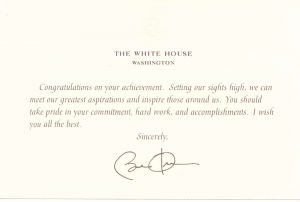 THE WHITE HOUSE
WASHINGTON
Congratulations on your achievement. Setting our sights high, we can
meet our greatest aspirations and inspire those around us. You should
take pride in your commitment, hard work, and accomplishments. I wish
you all the best.
Sincerely,